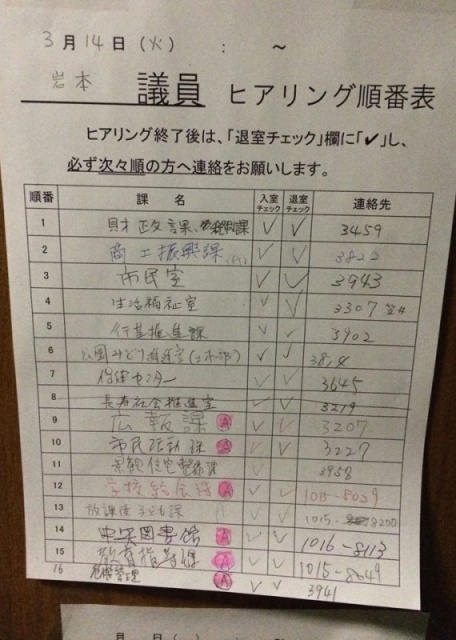 3月14日（火） ： ～
岩本 議員 ヒアリング順番表
ヒアリング終了後は、「退室チェック」欄に「✔」し、
必ず次々順の方へ連絡をお願いします。
順番 課 名 入室チェック 退室チェック 連絡先
1 財政課、 ✓ ✓ 3459
2 商工振興課 ✓ ✓ 3822
3 市民室 ✓ ✓ 3943
4 生活福祉室 ✓ ✓ 3307
5 行革推進課 ✓ ✓ 3902
6 公園みどり推進室(土木部) ✓ ✓
7 保健センター ✓ ✓ 3645
8 長寿社会推進室 3219
9 広報課 A ✓ ✓ 3207
10 市民活動課 A ✓ ✓ 3227
11 景観住宅整備課 ✓ ✓ 3958
12 学校給食課 A ✓ ✓ 1015-8059
13 放課後子ども課 ✓ ✓ 1015- 8200
14 中央図書館 A ✓ ✓ 1016-8113
15 教育指導課 A ✓ ✓ 1015-8649
16 危機管理 A ✓ ✓ 3941
月 日（火） ： ～